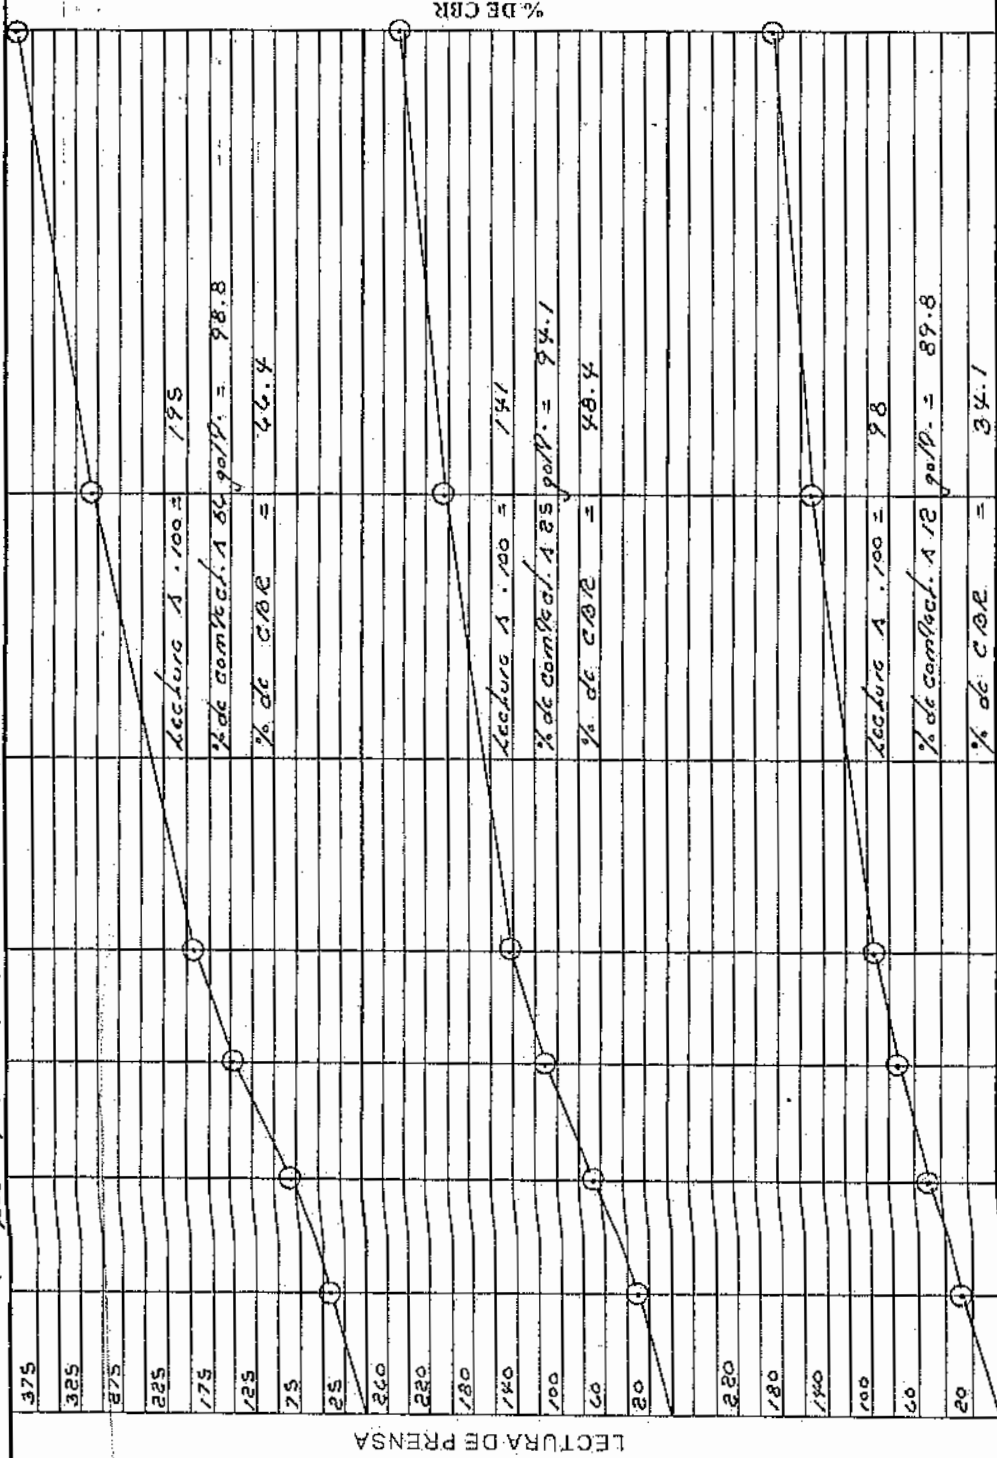 % DE CBR
LECTURA DE PRENSA
375
325
275
225
175
125
75
25
Lectura A .100 = 195
% de compact. A 56 golp. = 98.8
% de CBR =
260
220
180
140
100
60
20
Lectura A .100 = 141
% de compact. A 25 golp. = 94.1
% de CBR = 48.4
220
180
140
100
60
20
Lectura A .100 = 98
% de compact. A 12 golp. = 89.8
% de CBR = 34.1